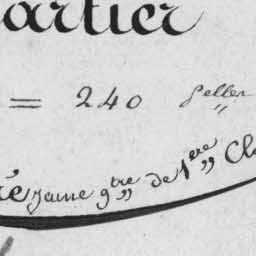 artier
= 240 Selles
ré jaune 9tre de 1ere Cla